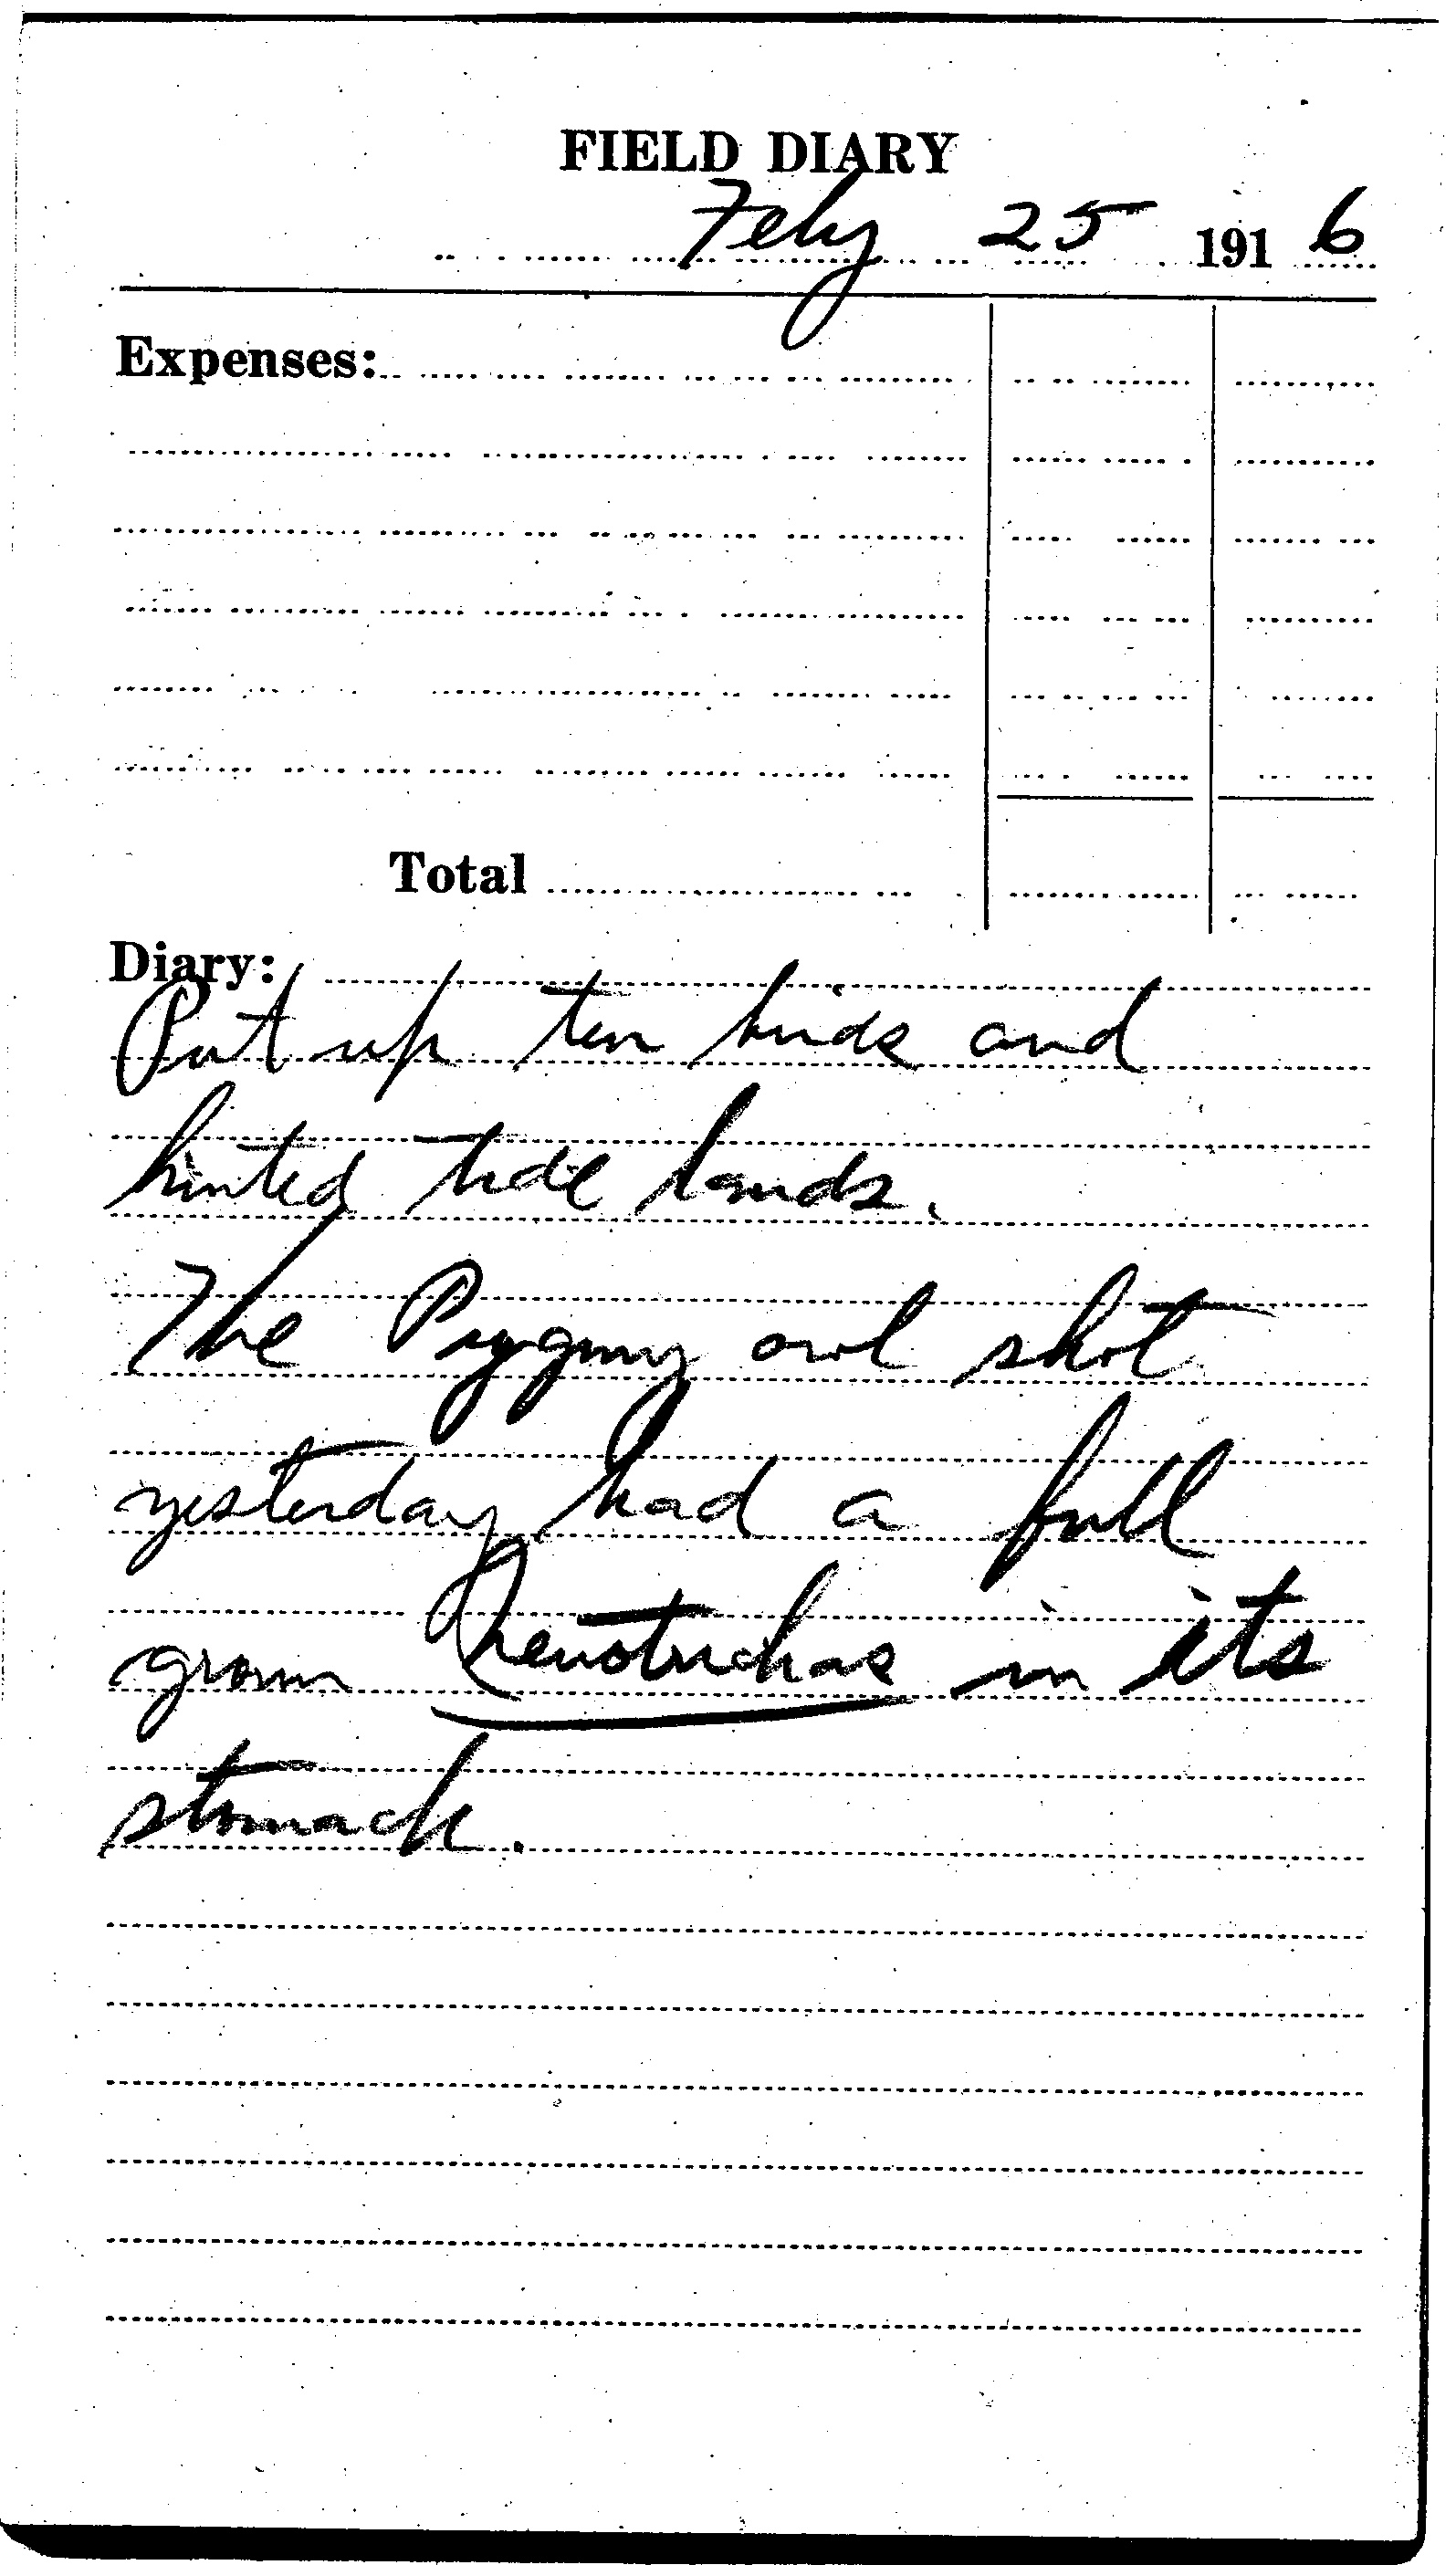 FIELD DIARY
Feby 25 1916
Expenses:
Total
Diary:
Put up ten birds and
hunted tide lands.
The Pygmy owl shot
yesterday had a full
grown Neurotrichus in its
stomach.